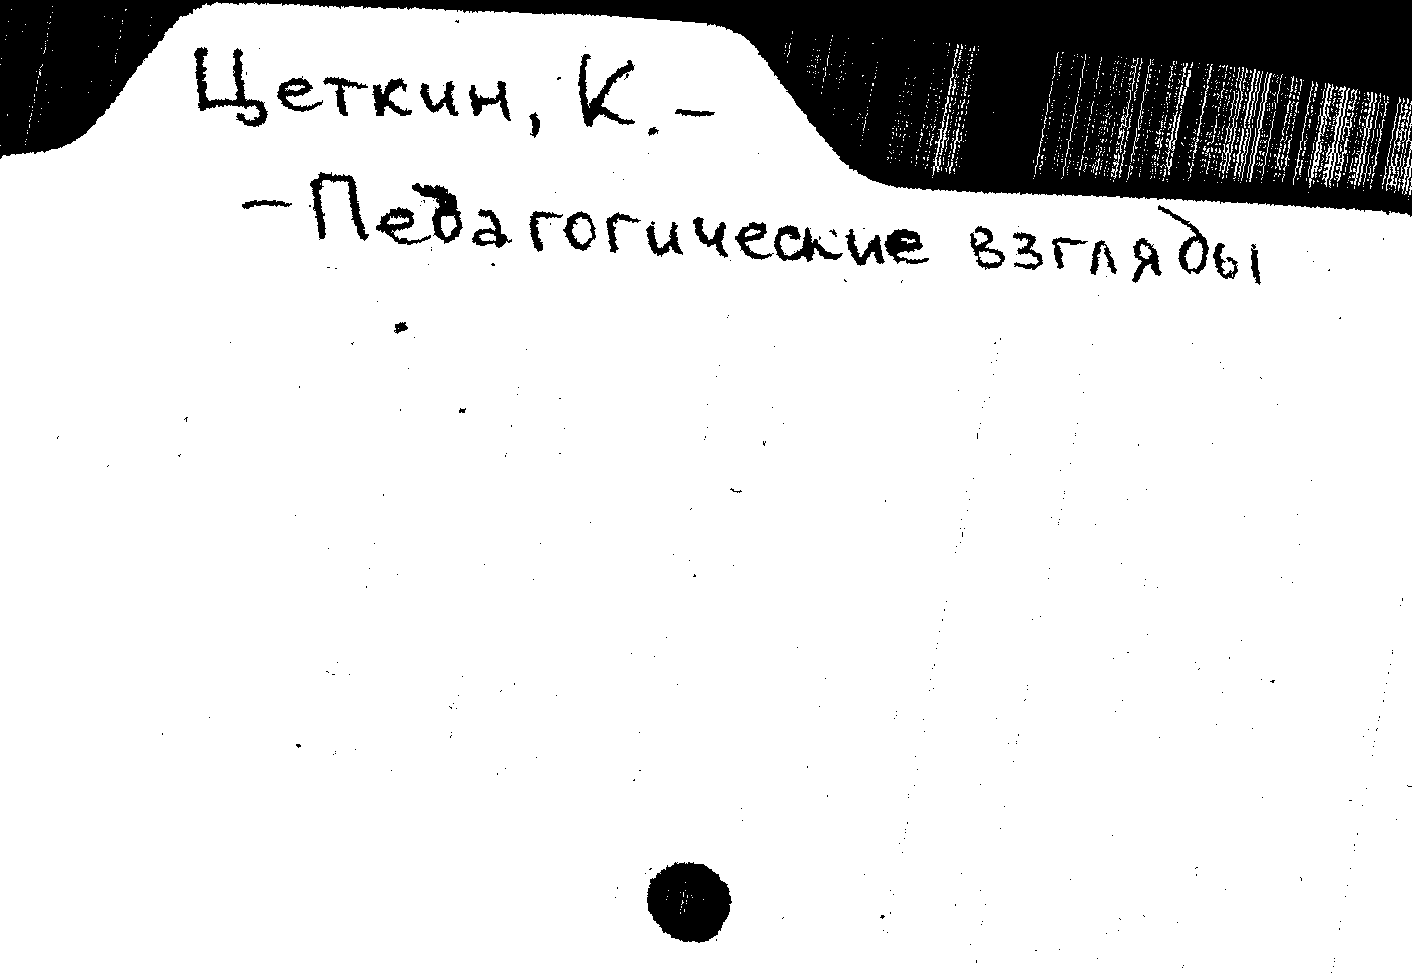 Цеткин, К. –
– Педагогические взгляды